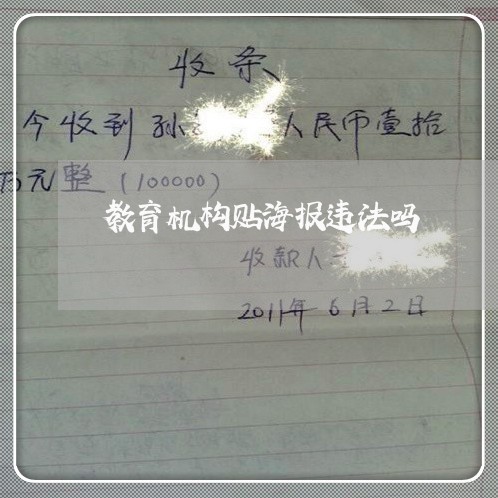 收条
今收到孙人民币壹拾
万元整（100000）
教育机构贴海报违法吗
收款人
2011年6月2日